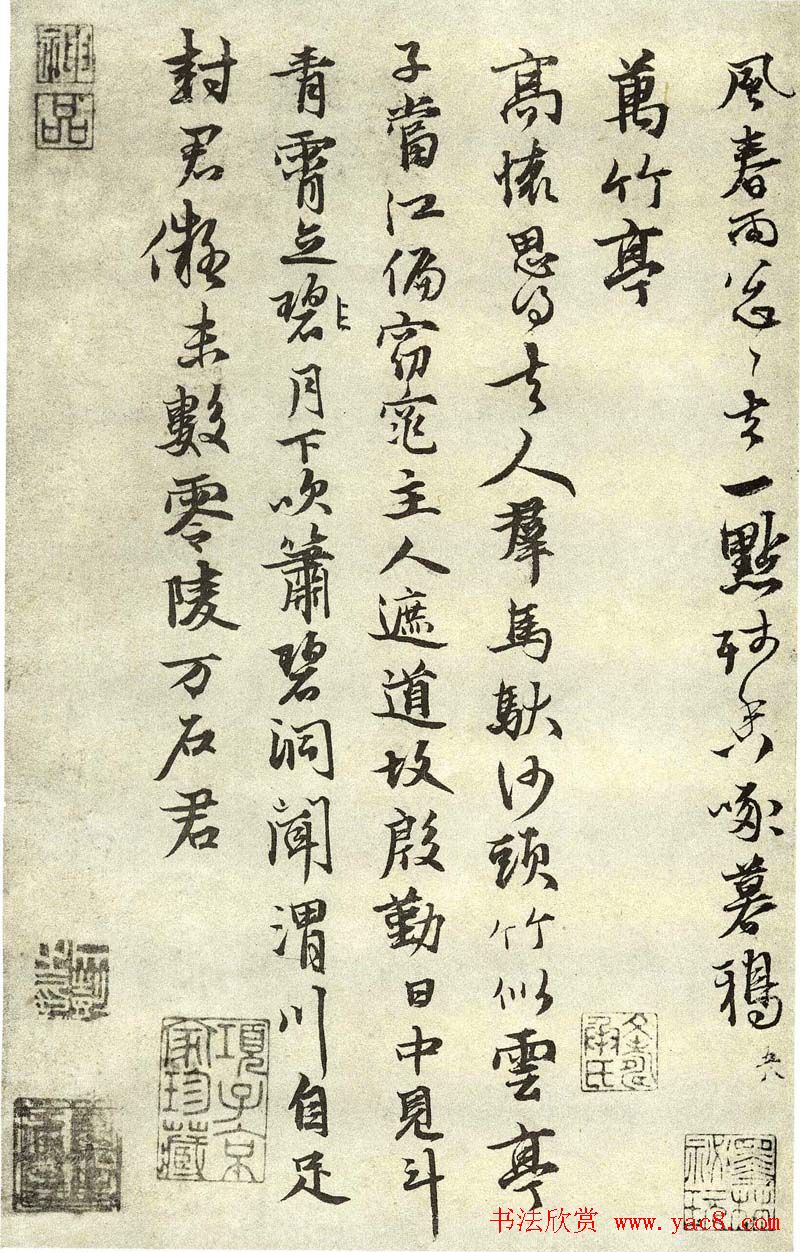 風春雨忽〻去一點残香啄暮鴉
萬竹亭
高懷思得去人羣馬馱沙頭竹似雲亭
子當江偏窈窕主人遮道故殷勤日中見斗
青霄立碧月下吹簫碧洞聞渭川自足
封君儗未數零陵万石君
神品
項子京家珍藏
书法欣赏 www.yac8.com